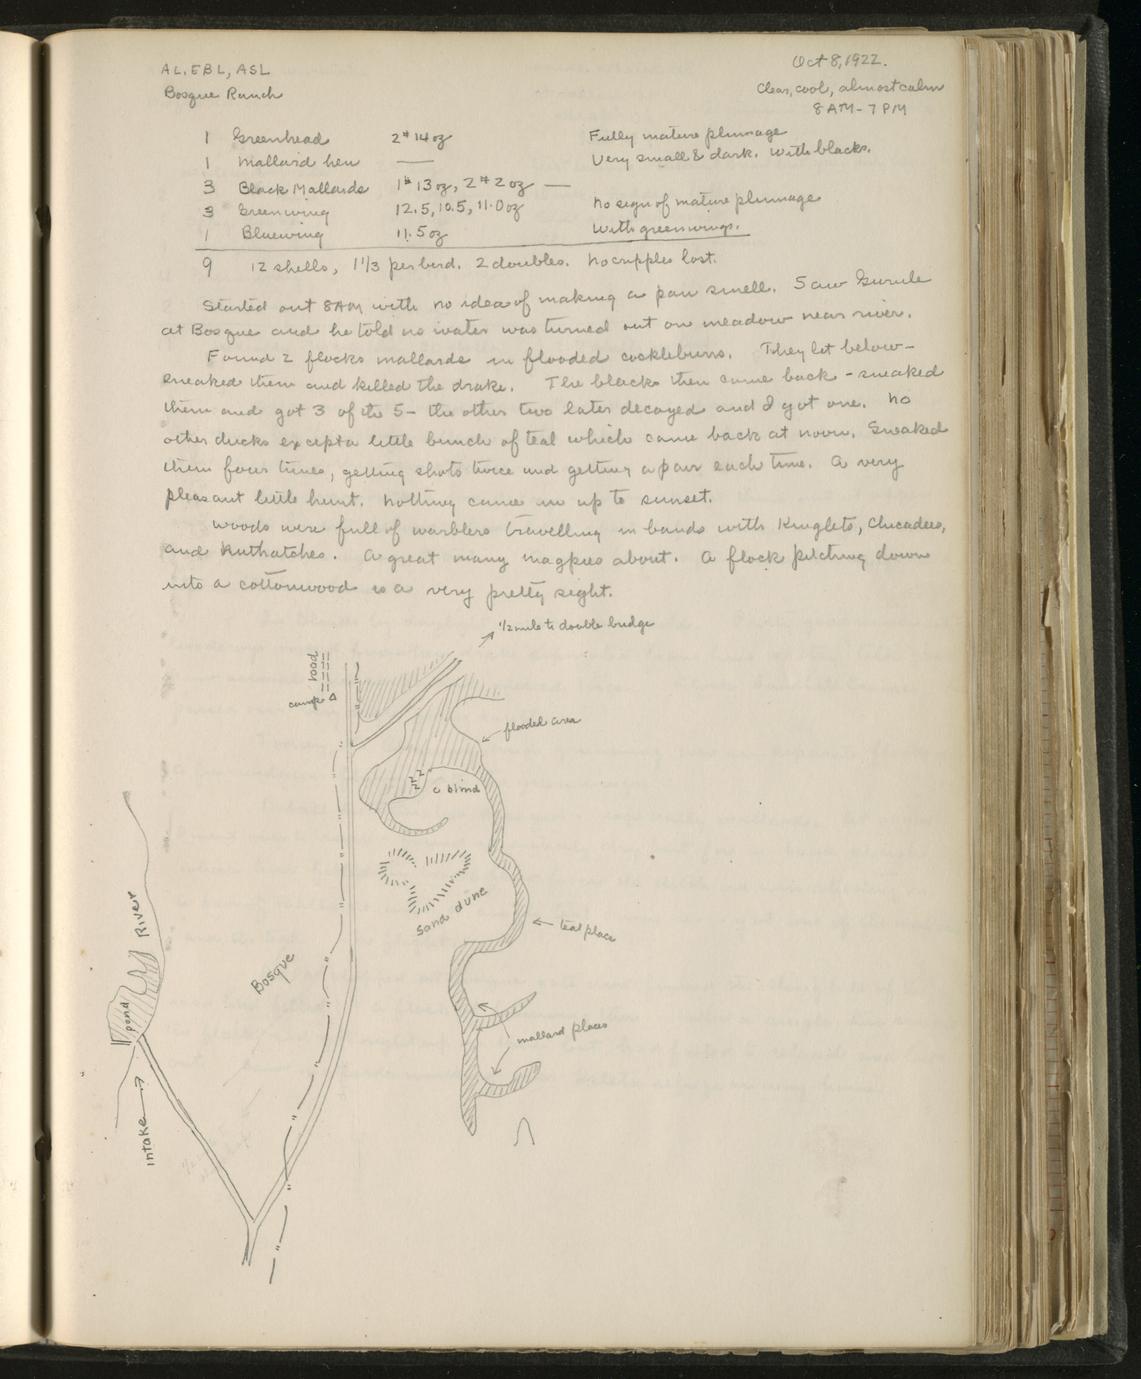 AL, EBL, ASL
Oct 8, 1922.
Bosque Ranch
Clear, cool, almost calm
8 AM - 7 PM
1 Greenhead 2# 14 oz Fully mature plumage
1 Mallard hen — Very small & dark. With blacks.
3 Black Mallards 1# 13 oz, 2# 2 oz —
3 Greenwing 12.5, 10.5, 11.0 oz No sign of mature plumage
1 Bluewing 11.5 oz With greenwings.
9 12 shells, 1 1/3 per bird. 2 doubles. No cripples lost.
Started out 8 AM with no idea of making a paw smell. Saw Gurule
at Bosque and he told us water was turned out on meadow near river.
Found 2 flocks mallards in flooded cockleburrs. They lit below -
sneaked them and killed the drake. The blacks then came back - sneaked
them and got 3 of the 5 - the other two later decoyed and I got one. No
other ducks except a little bunch of teal which came back at noon. Sneaked
them four times, getting shots twice and getting a pair each time. A very
pleasant little hunt. Nothing came in up to sunset.
Woods were full of warblers travelling in bands with Kinglets, Chicadees,
and Nuthatches. A great many magpies about. A flock pitching down
into a cottonwood is a very pretty sight.
1/2 mile to double bridge
road
camp
flooded area
blind
sand dune
teal place
River
Bosque
pond
mallard places
intake